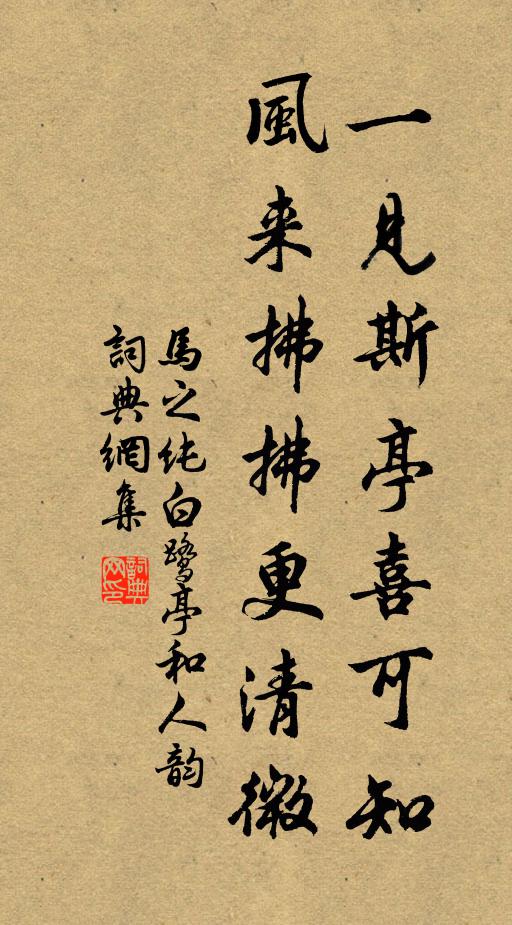 一見斯亭喜可知
風来拂拂更清微
馬之純白鷺亭和人韵
詞典網集
詞典網印